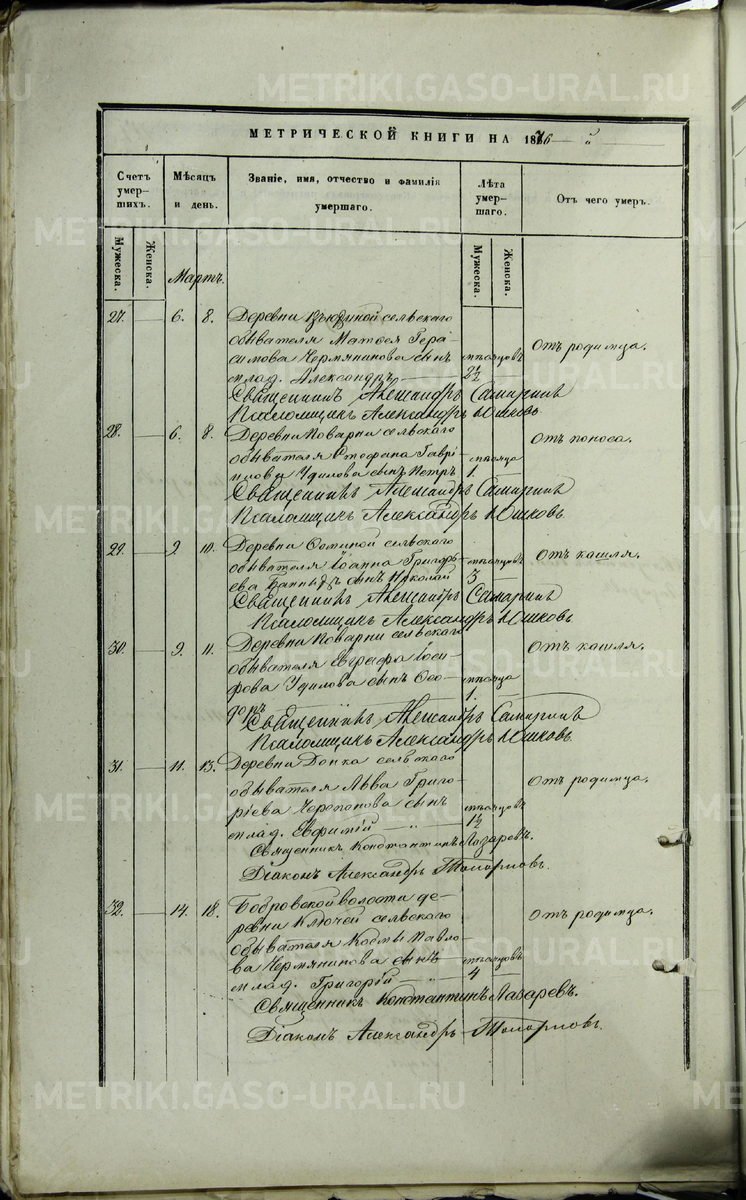 МЕТРИЧЕСКОЙ КНИГИ НА 1876 й
Счетъ умер-тихъ.
Мѣсяцъ и день.
Званіе, имя, отчество и фамилія умершаго.
Лѣта умер-шаго.
Отъ чего умеръ.
Мужеска.
Женска.
Мужеска.
Женска.
Мартъ.
27. — 6. 8. Деревни сельскаго
обывателя Матѳея Гера-
симова Чермянинова сынъ мѣсяцовъ Отъ родимца.
млад. Александръ 2½
Священникъ Александръ Самаринъ
Псаломщикъ Александръ Юшковъ.
28. — 6. 8. Деревни Поварни сельскаго
обывателя Стефана Гаврі- мѣсяца Отъ поноса.
лова Удилова сынъ Петръ 1.
Священникъ Александръ Самаринъ
Псаломщикъ Александръ Юшковъ.
29. — 9. 10. Деревни сельскаго
обывателя Іоанна Григорь- мѣсяцовъ Отъ кашля.
ева сынъ Николай 3
Священникъ Александръ Самаринъ
Псаломщикъ Александръ Юшковъ.
30. — 9. 11. Деревни Поварни сельскаго
обывателя Евграфа Іоси- Отъ кашля.
фова Удилова сынъ Ѳео- мѣсяца
доръ 1.
Священникъ Александръ Самаринъ
Псаломщикъ Александръ Юшковъ.
31. — 11. 13. Деревни Донка сельскаго
обывателя Льва Григо- Отъ родимца.
ріева Черепанова сынъ мѣсяцовъ
млад. Евфимій — „ — 1½
Священникъ Константинъ Лазаревъ.
Діаконъ Александръ Топорковъ.
32. — 14. 18. Бобровской волости де-
ревни Ключей сельскаго Отъ родимца.
обывателя Козмы Павло-
ва Чермянинова сынъ мѣсяцовъ
млад. Григорій 4
Священникъ Константинъ Лазаревъ.
Діаконъ Александръ Топорковъ.
METRIKI.GASO-URAL.RU